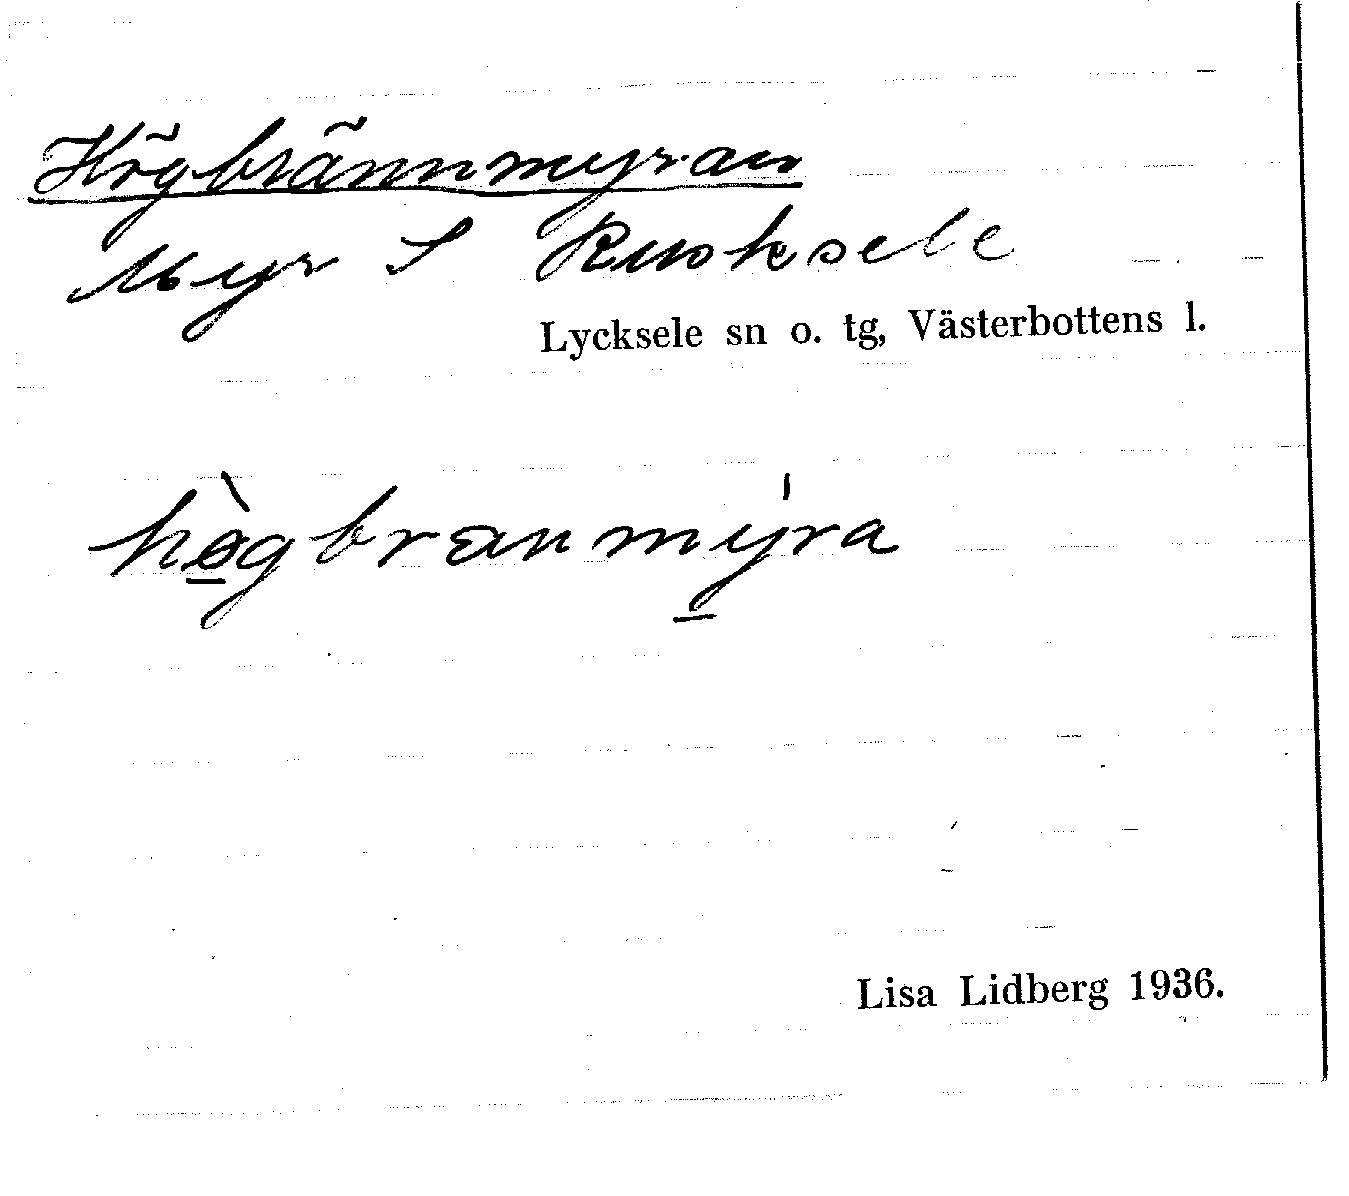 Högbrännmyran
Myr S Rusksele
Lycksele sn o. tg, Västerbottens l.
hə̲̀gbranmý̲ra
Lisa Lidberg 1936.